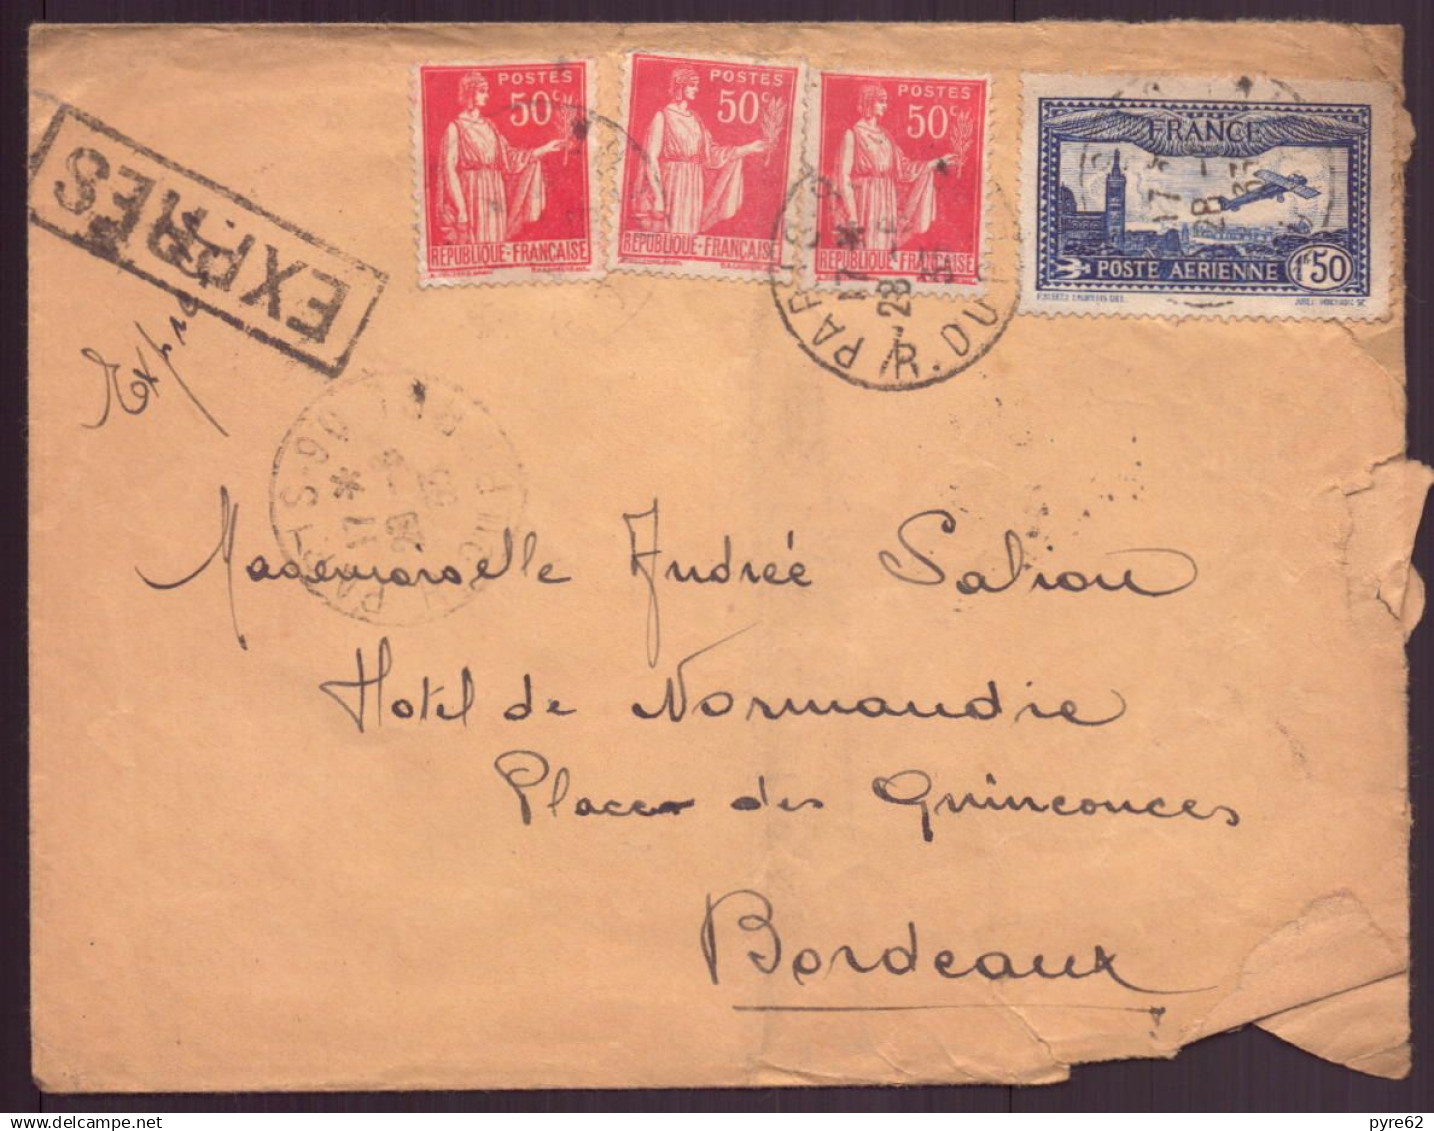 POSTES
50c
REPUBLIQUE-FRANÇAISE
POSTES
50c
REPUBLIQUE-FRANÇAISE
POSTES
50c
REPUBLIQUE-FRANÇAISE
FRANCE
POSTE AERIENNE 1F50
EXPRES
PARIS
17 *
28
R. DU
PARIS-90
17 *
Mademoiselle Andrée Saliou
Hotel de Normandie
Place des Quinconces
Bordeaux
pyre62